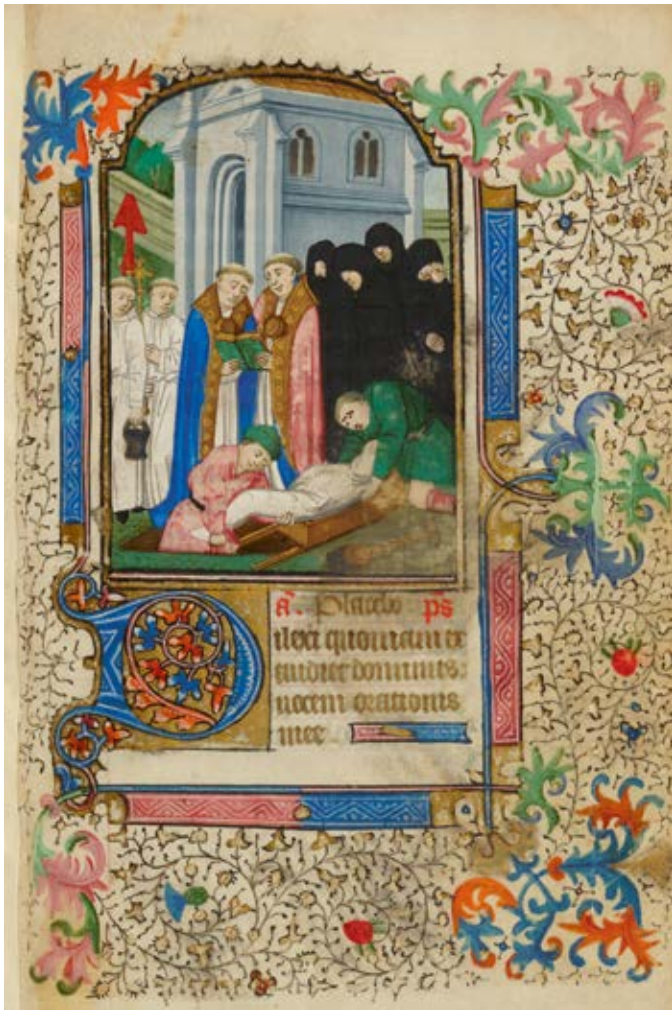 a. Placebo ps
Dilexi quoniam ex
audiet dominus:
vocem orationis
mee